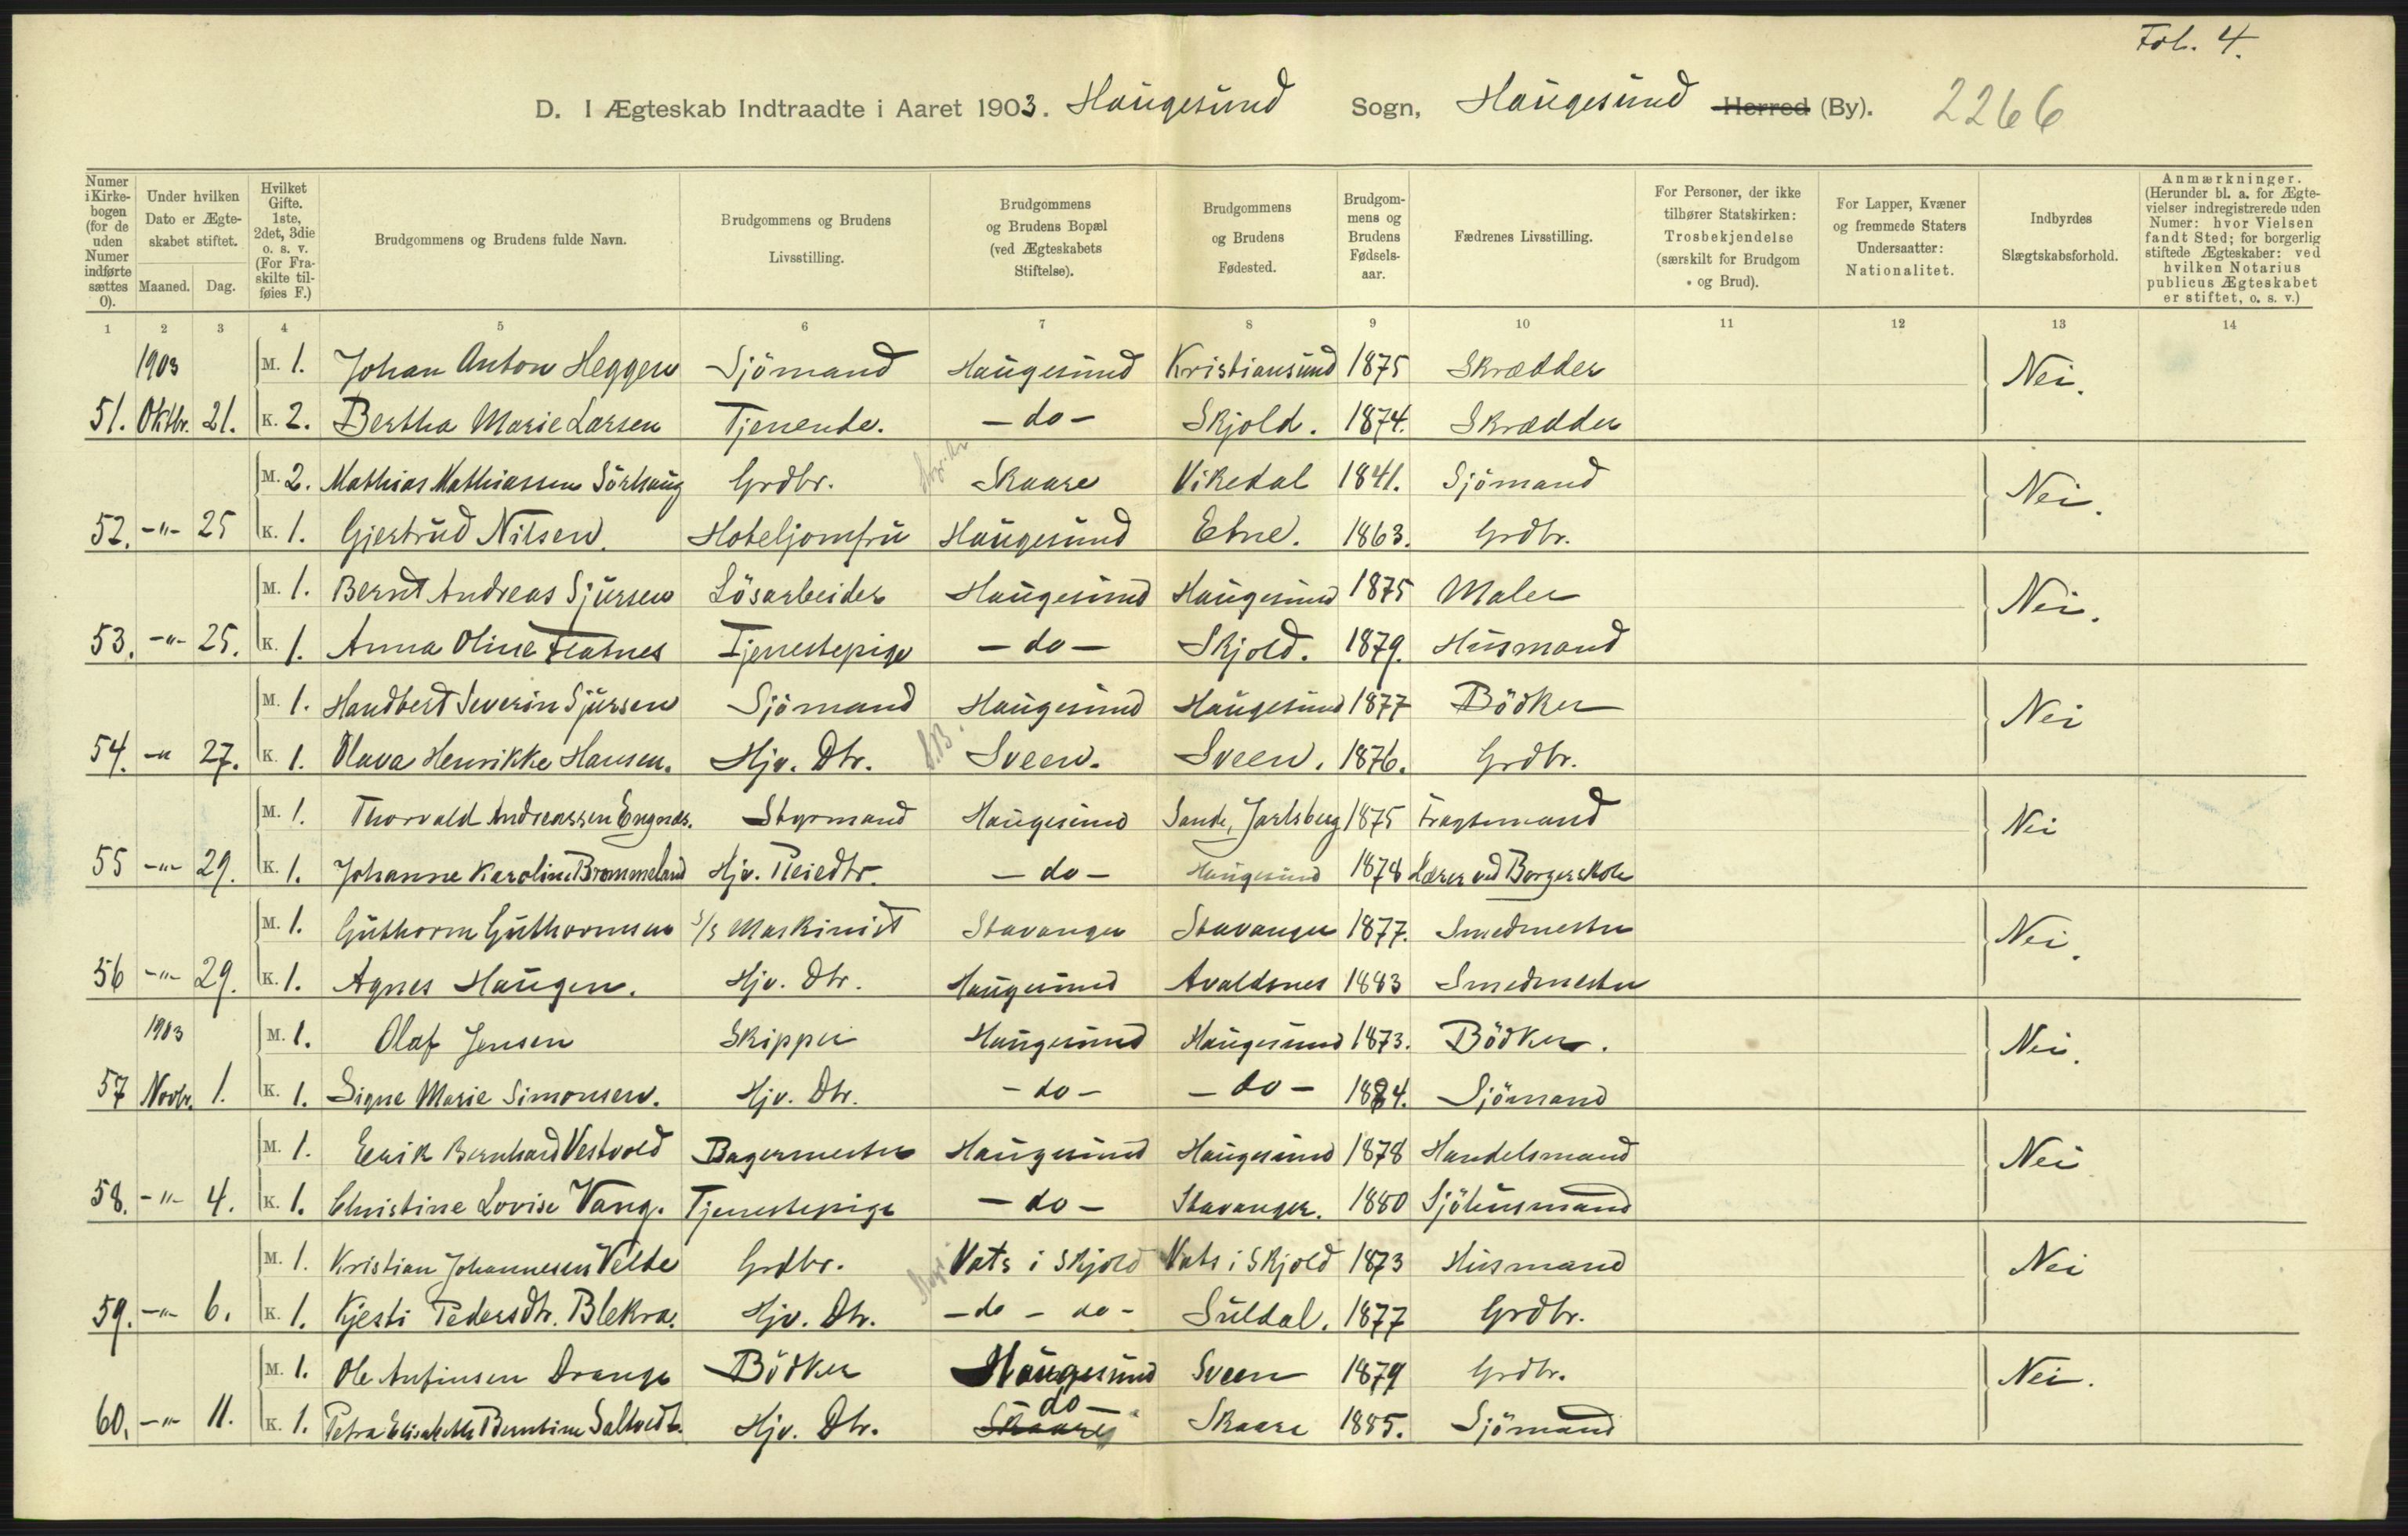 Fol. 4.
D. I Ægteskab Indtraadte i Aaret 1903. Haugesund Sogn, Haugesund Herred (By). 2266
Numer i Kirke-bogen (for de uden Numer indførte sættes 0).
Under hvilken Dato er Ægte-skabet stiftet.
Maaned. Dag.
Hvilket Gifte. 1ste, 2det, 3die o. s. v. (For Fra-skilte til-føies F.)
Brudgommens og Brudens fulde Navn.
Brudgommens og Brudens Livsstilling.
Brudgommens og Brudens Bopæl (ved Ægteskabets Stiftelse).
Brudgommens og Brudens Fødested.
Brudgom-mens og Brudens Fødsels-aar.
Fædrenes Livsstilling.
For Personer, der ikke tilhører Statskirken: Trosbekjendelse (særskilt for Brudgom og Brud).
For Lapper, Kvæner og fremmede Staters Undersaatter: Nationalitet.
Indbyrdes Slægtskabsforhold.
Anmærkninger. (Herunder bl. a. for Ægte-vielser indregistrerede uden Numer: hvor Vielsen fandt Sted; for borgerlig stiftede Ægteskaber: ved hvilken Notarius publicus Ægteskabet er stiftet, o. s. v.)
1 2 3 4 5 6 7 8 9 10 11 12 13 14
1903 M. 1. Johan Anton Heggen Sjömand Haugesund Kristiansund 1875 Skrædder Nei.
51. Oktbr. 21. K. 2. Bertha Marie Larsen Tjenende. - do - Skjold. 1874. Skrædder
M. 2. Mathias Mathiassen Sörhaug Grdbr. Skaare Vikedal 1841. Sjömand Nei.
52. -"- 25 K. 1. Gjertrud Nilsen. Hoteljomfru Haugesund Etne. 1863. Grdbr.
M. 1. Bernt Andreas Sjursen Lösarbeider Haugesund Haugesund 1875 Maler Nei.
53. -"- 25. K. 1. Anna Oline Flatnes Tjenestepige - do - Skjold. 1879. Husmand
M. 1. Handbert Severin Sjursen Sjömand Haugesund Haugesund 1877 Bödker Nei
54. -" 27. K. 1. Olava Henrikke Hansen. Hjv. Dtr. Sveen. Sveen. 1876. Grdbr.
M. 1. Thorvald Andreassen Engnæs. Styrmand Haugesund Sande, Jarlsberg 1875 Fragtemand Nei
55 -"- 29. K. 1. Johanne Karoline Brommeland Hjv. Pleiedtr. - do - Haugesund 1878 Lærer ved Borgerskole
M. 1. Guthorm Guthormsen S/S Maskinist Stavanger Stavanger 1877. Smedmester Nei.
56 -"- 29. K. 1. Agnes Haugen. Hjv. Dtr. Haugesund Avaldsnes 1883 Smedmester
1903 M. 1. Olaf Jensen Skipper Haugesund Haugesund 1873. Bödker. Nei.
57 Novbr. 1. K. 1. Signe Marie Simonsen. Hjv. Dtr. - do - - do - 1884. Sjömand
M. 1. Eerik Bernhard Vestvold Bagermester Haugesund Haugesund 1878 Handelsmand Nei
58. -"- 4. K. 1. Christine Lovise Vang. Tjenestepige - do - Stavanger. 1880 Sjöhusmand
M. 1. Kristian Johannesen Velde Grdbr. Vats i Skjold Vats i Skjold 1873 Husmand Nei
59. -"- 6. K. 1. Kjesti Pedersdtr. Blekra. Hjv. Dtr. - do - do - Suldal. 1877 Grdbr.
M. 1. Ole Anfinsen Drange Bödker Haugesund Sveen 1879 Grdbr. Nei.
60. -"- 11. K. 1. Petra Elisabeth Berntine Saltvedt. Hjv. Dtr. do - Skaare Skaare 1885. Sjömand